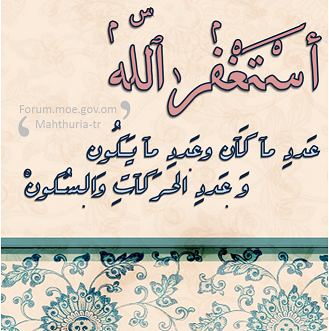 أستغفر الله
Forum.moe.gov.om
Mahthuria-tr
عدد ما كان وعدد ما يكون
و عدد الحركات والسكون